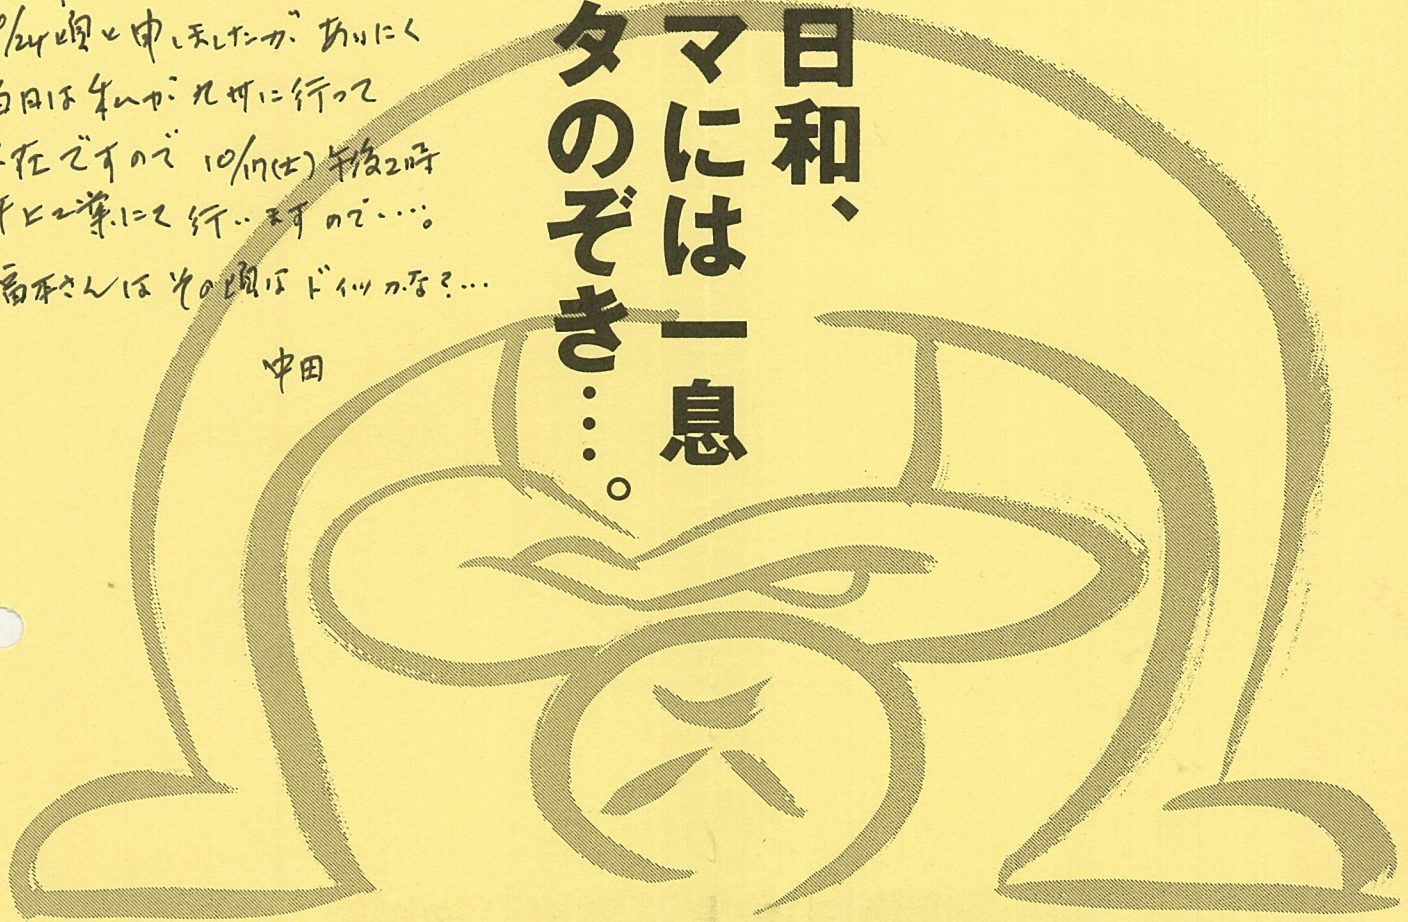 日和、
マには一息
タのぞき……。
/24頃と申しましたが あいにく
当日は私が九州に行って
在ですので 10/17(土)午後2時
工業にて行いますので……。
高本さんはその頃はドイツかな?…
中田